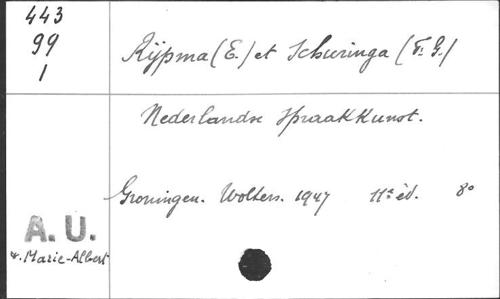 443
99
1
Rijpma (E.) et Schuringa (F. G.)
Nederlandse spraakkunst.
Groningen. Wolters. 1947 11e éd. 8°
A. U.
r. Marie-Albert